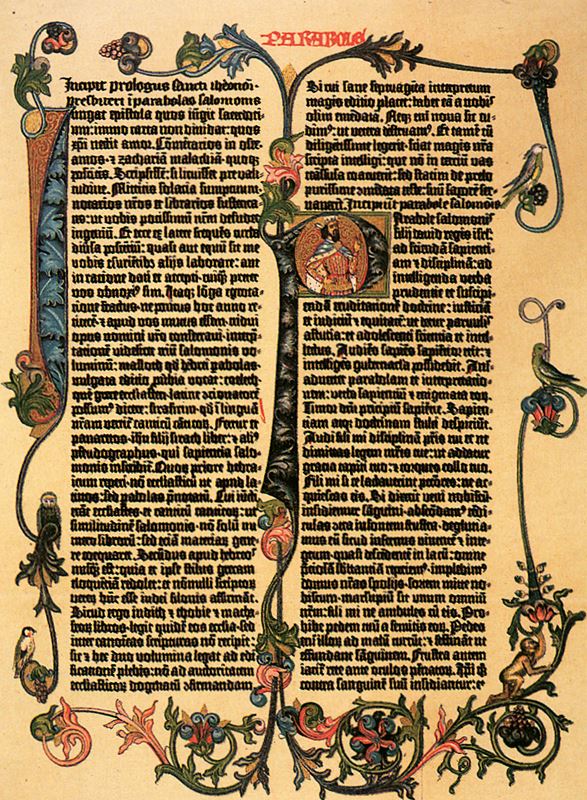 PARABOLE
Incipit prologus sancti iheronimi
presbiteri ī parabolas salomonis
Iungat epistola quos iūgit sacerdoti-
um: immo carta non dividat: quos
xp̄i nectit amor. Cōmētarios in osee
amos ⁊ zachariā malachiā quoq̄
poscitis. Scripsissē: si licuisset pre vali-
tudine. Mittitis solacia sumptuum
notarios nr̄os et librarios sustenta-
tis: ut vobis potissimū nr̄m desudet
ingeniū. Et ecce ex latere frequēs turba
diversa poscētiū: quasi aut equū sit me
vobis esuriētibus alijs laborare: aut
in ratione dati et accepti cuiq̄ preter
vos obnoxi⁹ sim. Itaq̄ lōga egrota-
tione fractus ne penitus hoc anno re-
ticerē ⁊ apud vos mutus essem: tridui
opus nomini vr̄o consecravi: interp̄-
tationē videlicet triū salomonis vo-
luminū: masloth qd̄ hebrei pabolas
vulgata editio proverbia vocat: coeleth
quē grece ecclesiasten latine ↄcionatorē
possum⁹ dicere: sirasirim qd̄ ī linguā
nr̄am vertit̄ canticū cāticoꝝ. Fertur et
panaretos ihū filij sirach liber: ⁊ ali⁹
pseudographus qui sapientia salo-
monis inscribit̄. Quoꝝ priorē hebra-
icum reperi nō ecclesiasticū ut apud la-
tinos: sed pabolas p̄notatū. Cui iūcti
erāt ecclesiastes et canticū canticoꝝ: ut
similitudinē salomonis nō solū nu-
mero librorū: sed etiā materiaꝝ gene-
re coequaret. Secūdus apud hebreos
nusq̄ est: quia et ipse stilus grecam
eloquētiā redolet: et nōnulli scriptoꝝ
veteꝝ hūc esse iudei filonis affirmāt.
Sicud ergo iudith ⁊ thobie ⁊ macha-
beoꝝ libros legit quidē eos ecclesia sed
inter canonicas scripturas nō recipit:
sic ⁊ hec duo volumina legat ad edi-
ficationē plebis: nō ad auctoritatem
ecclesiasticoꝝ dogmatū ↄfirmandam.
Si cui sane septuaginta interpretum
magis editio placet: habet eā a nobis
olim emēdatā. Neq̄ em̄ nova sic cu-
dim⁹: ut vetera destruam⁹. Et tamē cū
diligētissime legerit: sciat magis nr̄a
scripta intelligi: que nō in terciū vas
trāsfusa coacuerīt: sed statim de prelo
purissime ↄmēdata teste: suū saporē ser-
vaverīt. Incipiūt parabole salomonis
Parabole salomonis
filij david regis isrl̄:
ad sciendā sapienti-
am ⁊ disciplinā: ad
intelligenda verba
prudentie et suscipi-
endā eruditionem doctrine: iusticiā
et iudiciū ⁊ equitatē: ut detur parvulis
astutia: et adolescenti scientia et intel-
lectus. Audiēs sapiēs sapiētior erit: ⁊
intelligēs gubernacla possidebit. Ani-
advertet parabolam et interpretatio-
nem: verba sapientiū ⁊ enigmata eoꝝ.
Timor dn̄i principiū sapiētie. Sapien-
tiam atq̄ doctrinam stulti despiciūt.
Audi fili mi disciplinā pr̄is tui et ne
dimittas legem mr̄is tue: ut addatur
gracia capiti tuo ⁊ torques collo tuo.
Fili mi si te lactaverint pctōres: ne ac-
quiescas eis. Si dixerīt veni nobiscū
insidiemur sāguini: abscōdam⁹ tēdi-
culas ↄtra insontem frustra: degluti-
amus eū sicud infernus viventē ⁊ inte-
grum: quasi descēdentē in lacū: omnē
p̄ciosā sb̄stantiā reperiem⁹: implebim⁹
domus nr̄as spolijs: sortem mitte no-
biscum: marsupiū sit unum omniū
nr̄um: fili mi ne ambules cū eis. Pro-
hibe pedem tuū a semitis eoꝝ. Pedes
em̄ illoꝝ ad malū currūt: ⁊ festināt ut
effundant sāguinem. Frustra autem
iacit̄ rete ante oculos pēnatoꝝ. Ip̄i q̄
contra sanguinē suū insidiantur: et